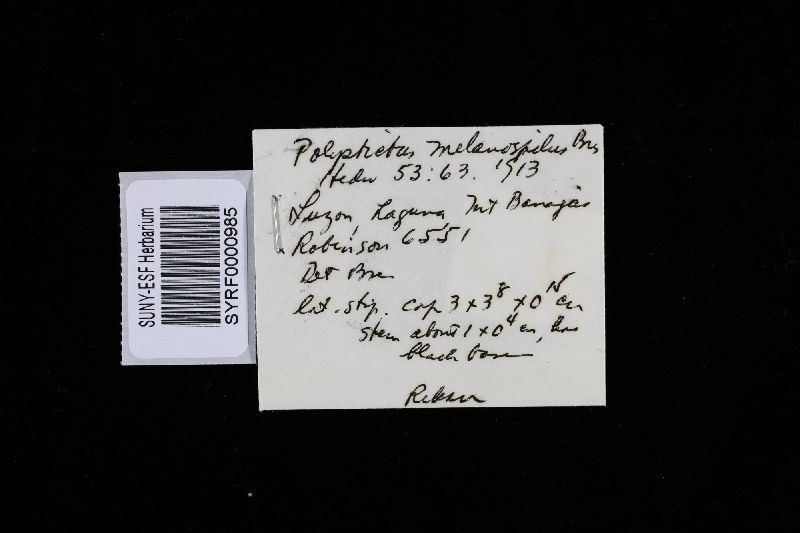 SUNY-ESF Herbarium
SYRF0000985
Polystictus melanospilus Bres
Hedw 53:63. 1913
Luzon, Laguna Mt Banajao
Robinson 6551
Det Bres
lat. stip. cap 3 x 3⁸ x 0¹⁵ cm
stem about 1 x 0⁴ cm, has
black base